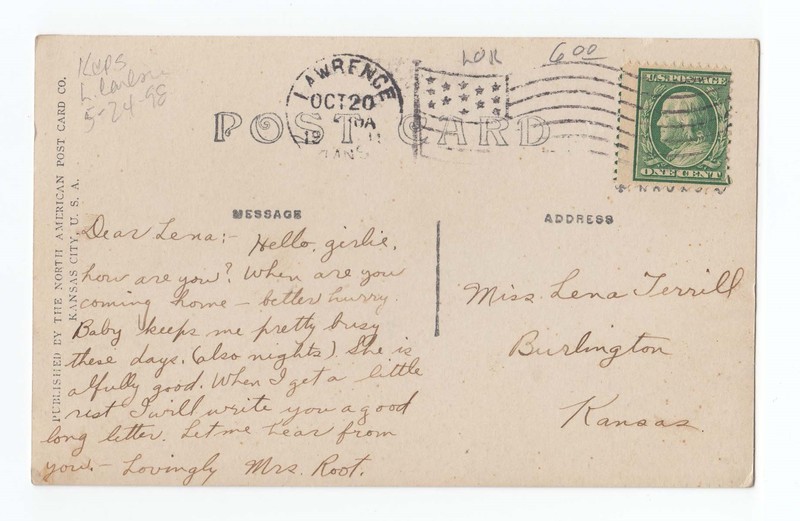 Kups
5-24-98
LOR
6 00
LAWRENCE
OCT 20
KANS
POST CARD
U.S. POSTAGE
ONE CENT
PUBLISHED BY THE NORTH AMERICAN POST CARD CO.
KANSAS CITY, U. S. A.
MESSAGE
Dear Lena:- Hello, girlie,
how are you? When are you
coming home - better hurry.
Baby keeps me pretty busy
these days. (also nights). She is
alfully good. When I get a little
rest I will write you a good
long letter. Let me hear from
you. - Lovingly Mrs. Root.
ADDRESS
Miss Lena Terrill
Burlington
Kansas.